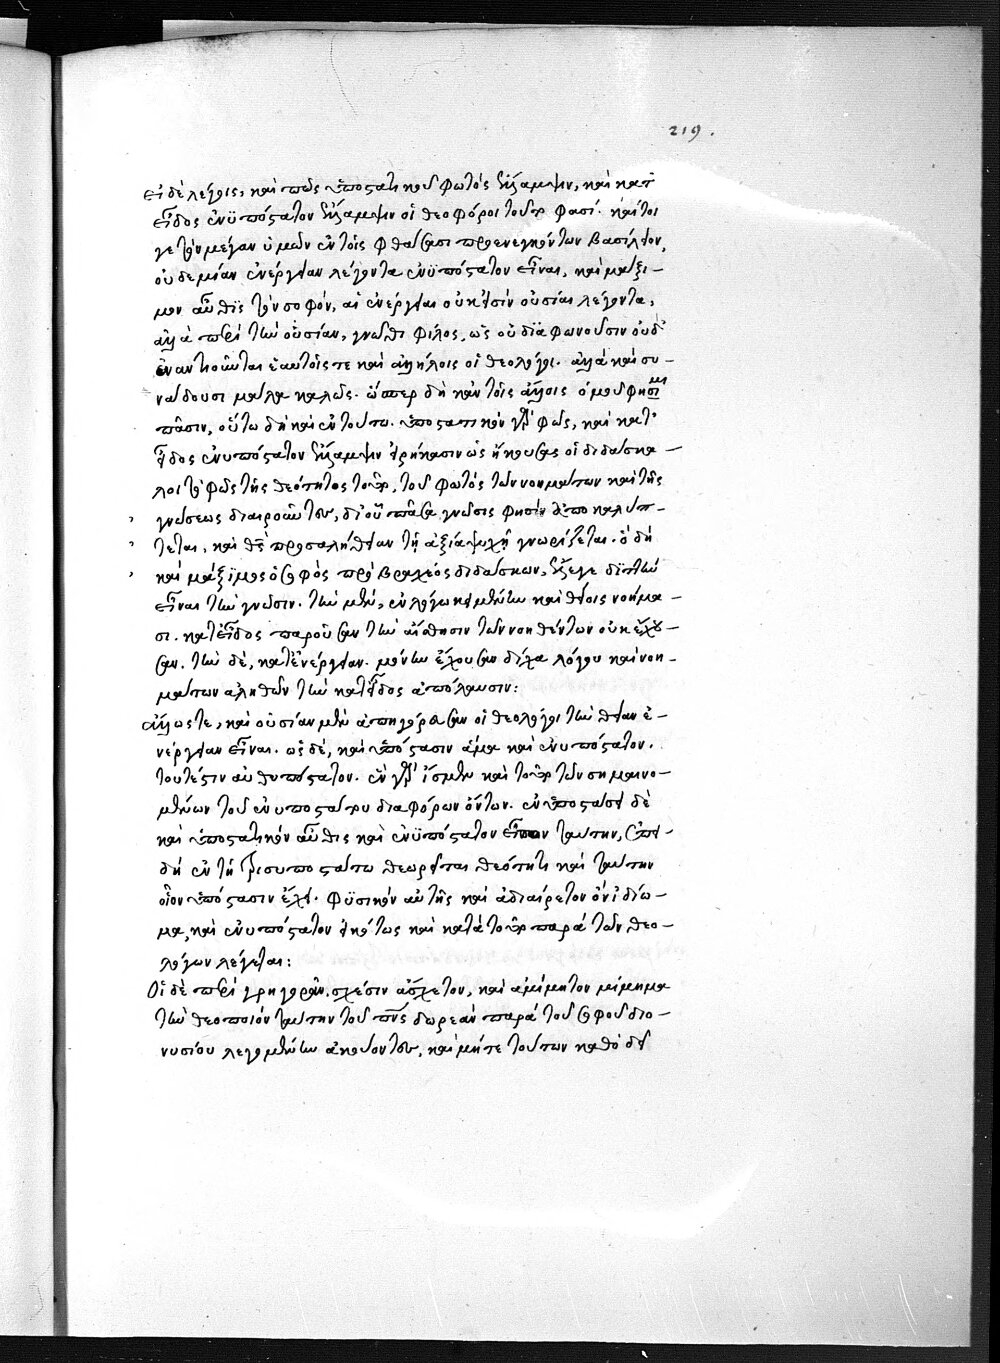 219.
εἰ δὲ λέγεις, καὶ πῶς ὑποστατικοῦ φωτὸς ἔλλαμψιν, καὶ κατ'
εἶδος ἐνϋπόστατον ἔλλαμψιν οἱ θεοφόροι τοῦτο φασί. καίτοι
γε τὸν μέγαν ὑμῶν ἐν τοῖς φθάσασι προενεγκόντων βασίλειον,
οὐδεμίαν ἐνέργειαν λέγοντα ἐνϋπόστατον εἶναι, καὶ μάξι-
μον αὖθις τὸν σοφόν, αἱ ἐνέργειαι οὐκ εἰσὶν οὐσίαι λέγοντα,
ἀλλὰ περὶ τὴν οὐσίαν, γνῶθι φίλος, ὡς οὐ διαφωνοῦσιν οὐδ'
ἐναντιοῦνται ἑαυτοῖς τε καὶ ἀλλήλοις οἱ θεολόγοι. ἀλλὰ καὶ συ-
νάδουσι μάλα καλῶς. ὥσπερ δὴ κἀν τοῖς ἄλλοις ὁμοῦ φησι
πᾶσιν, οὕτω δὴ καὶ ἐν τούτω. ὑποστατικὸν γὰρ φῶς, καὶ κατ'
εἶδος ἐνυπόστατον ἔλλαμψιν εἰρήκασιν ὡς ἤκουσας οἱ διδάσκα-
λοι τὸ φῶς τῆς θεότητος τοῦτο, τοῦ φωτὸς τῶν νοημάτων καὶ τῆς
γνώσεως διαιροῦντες, δι' οὗ πᾶσα γνῶσις φησὶν ἀποκαλύπ-
τεται, καὶ θεὸς προσαλήθειαν τῇ ἀξία ψυχῇ γνωρίζεται. ὃ δὴ
καὶ μάξιμος ὁ σοφὸς πρὸ βραχέος διδάσκων, ἔλεγε διττὴν
εἶναι τὴν γνῶσιν. τὴν μὲν, ἐν λόγω κειμένην καὶ θείοις νοήμα-
σι. κατεῖδος παροῦσαν τὴν αἴσθησιν τῶν νοηθέντων οὐκ ἔχου-
σαν. τὴν δὲ, κατενέργειαν. μόνην ἔχουσαν δίχα λόγου καὶ νοη-
μάτων ἀληθῶν τὴν κατεῖδος ἀπόλαυσιν:
ἄλλως τε, καὶ οὐσίαν μὲν ἀπηγόρευσαν οἱ θεολόγοι τὴν θείαν ἐ-
νέργειαν εἶναι. ὡς δὲ, καὶ ὑπόστασιν ἅμα καὶ ἐνυπόστατον.
τουτέστιν αὐθυπόστατον. ἓν γὰρ ἴσμεν καὶ τοῦτο τῶν σημαινο-
μένων τοῦ ἐνυποστάτου διαφόρων ὄντων. ἐνυπόστατον δὲ
καὶ ὑποστατικὸν αὖθις καὶ ἐνϋπόστατον εἶπον ταύτην, ἐπει-
δὴ ἐν τῇ τρισυποστάτω θεωρεῖται θεότητι καὶ ταύτην
οἷον ὑπόστασιν ἔχει. φυσικὸν αὐτῆς καὶ ἀδιαίρετον ὂν ἰδίω-
μα, καὶ ἐνυπόστατον εἰκότως καὶ κατὰ τοῦτο παρὰ τῶν θεο-
λόγων λέγεται:
Οἱ δὲ περὶ γρηγορᾶν, σχέσιν ἄσχετον, καὶ ἀμίμητον μίμημα
τὴν θεοποιὸν ταύτην τοῦ πνς δωρεὰν παρὰ τοῦ σοφοῦ διο-
νυσίου λεγομένην ἀκούοντες, καὶ μήτε τούτων καθὸ δεῖ